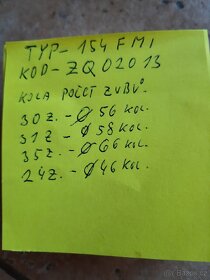 TYP- 154 FMI
KOD- ZQ02013
KOLA POČET ZUBŮ.
30 Z. - Ø 56 KOL.
31 Z - Ø 58 KOL.
35 Z. - Ø 66 KOL.
24 Z. - Ø 46 KOL.